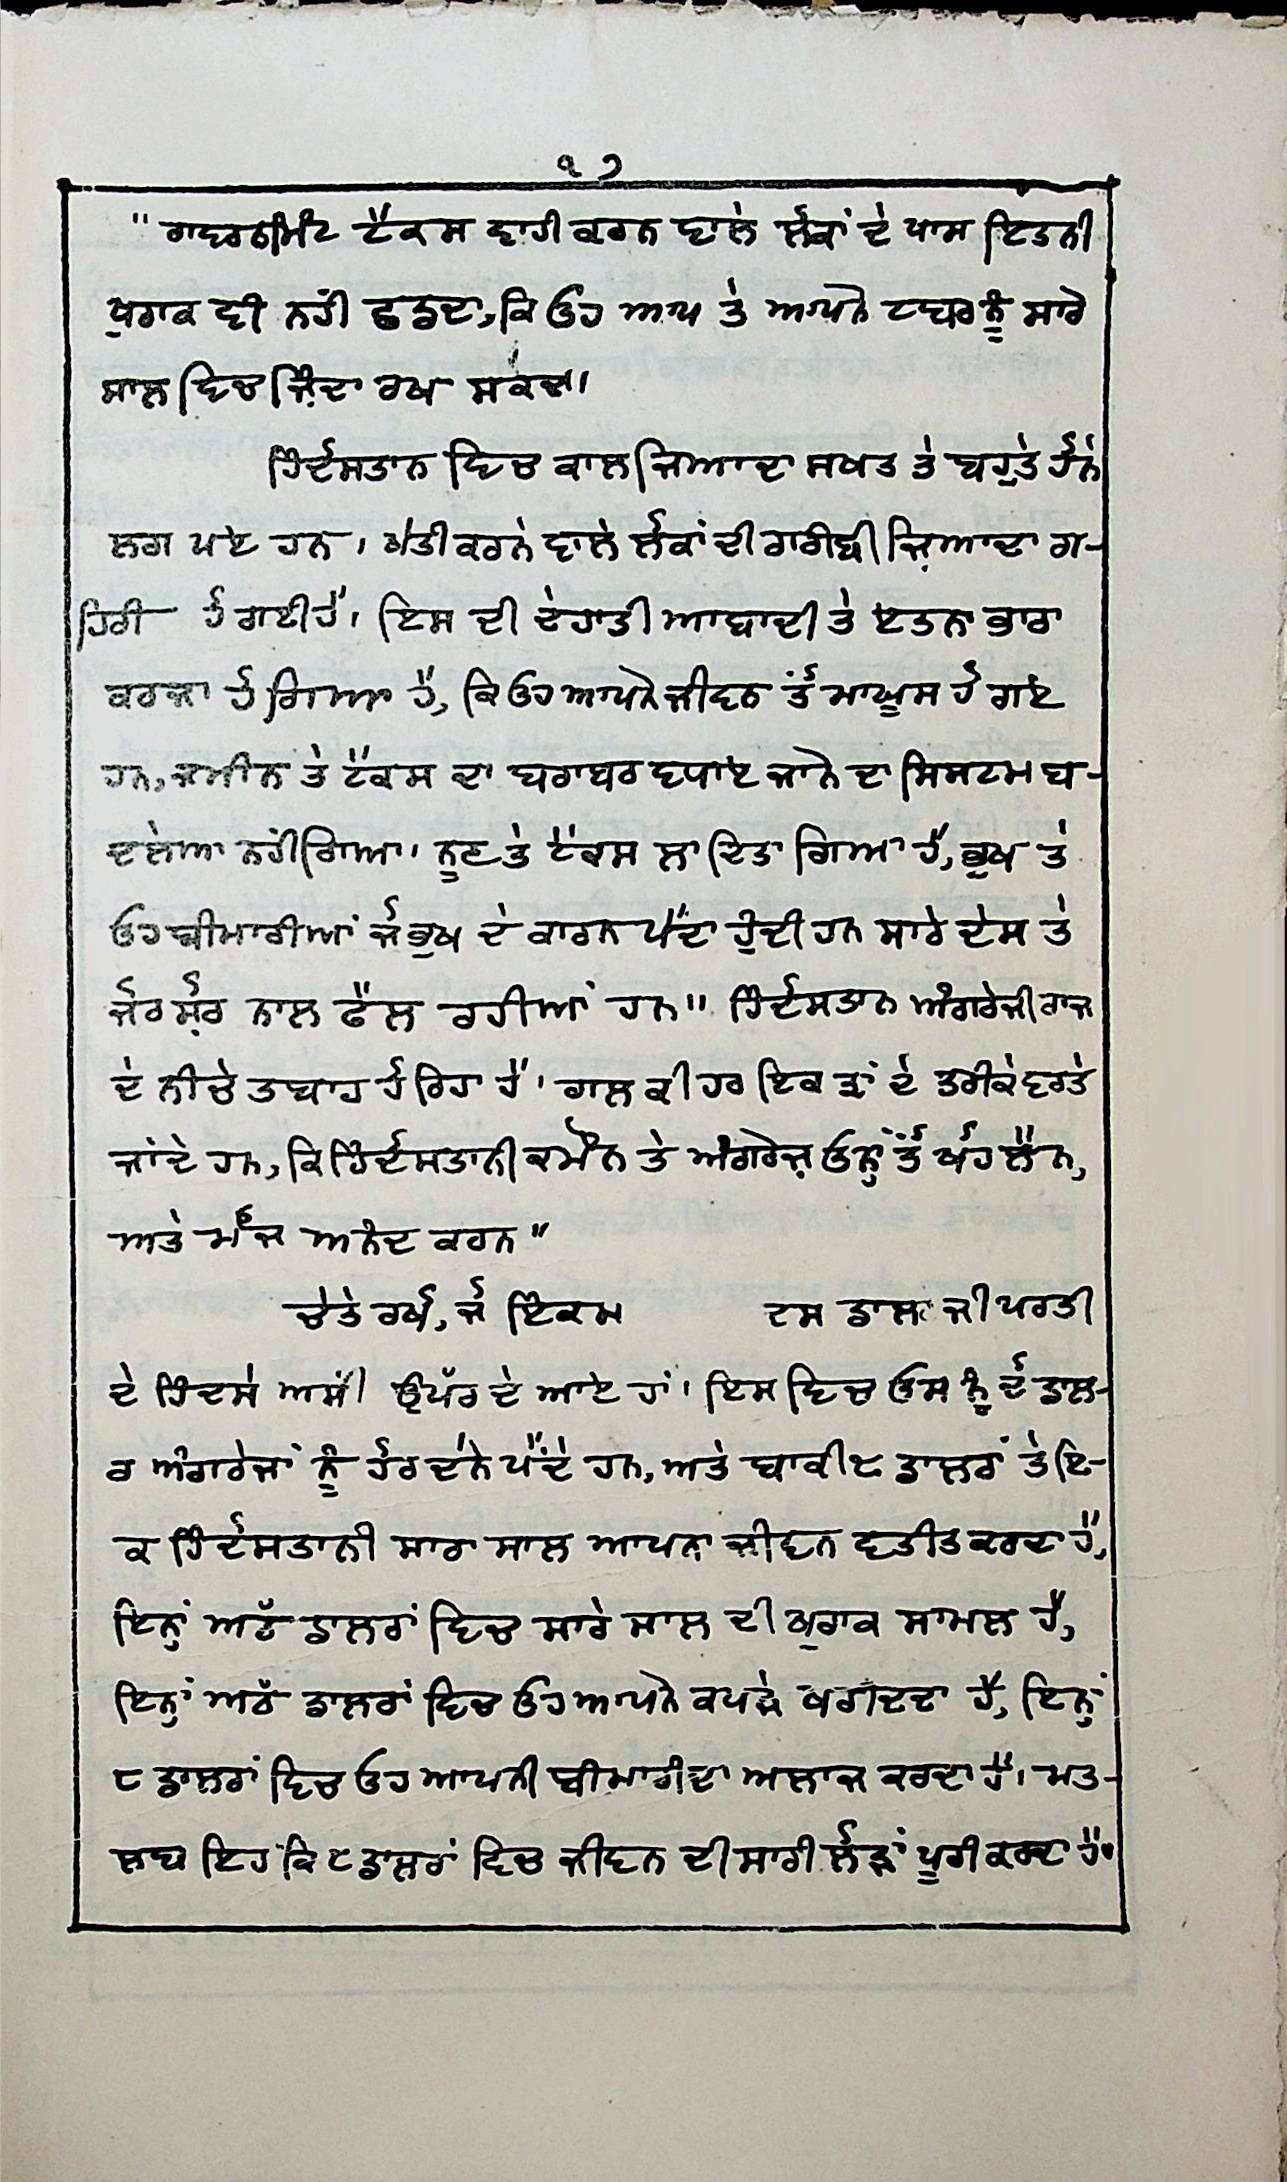 ੧੭
"ਗਾਵਰਨਮਿੰਟ ਟੈਕਸ ਵਾਹੀ ਕਰਨ ਵਾਲੇ ਲੋਕਾਂ ਦੇ ਪਾਸ ਇਤਨੀ
ਖੁਰਾਕ ਵੀ ਨਹੀਂ ਛਡਦਾ, ਕਿ ਓਹ ਆਪ ਤੇ ਆਪਨੇ ਟਬਰ ਨੂੰ ਸਾਰੇ
ਸਾਲ ਵਿਚ ਜ਼ਿੰਦਾ ਰਖ ਸਕੇ।
ਹਿੰਦੋਸਤਾਨ ਵਿਚ ਕਾਲ ਜਿਆਦਾ ਸਖਤ ਤੇ ਬਹੁਤੇ ਹੋਨੇ
ਲਗ ਪਏ ਹਨ। ਖੇਤੀ ਕਰਨੇ ਵਾਲੇ ਲੋਕਾਂ ਦੀ ਗਰੀਬੀ ਜ਼ਿਆਦਾ ਗ-
ਹਿਰੀ ਹੋ ਗਈ ਹੈ। ਇਸ ਦੀ ਦੇਹਾਤੀ ਆਬਾਦੀ ਤੇ ਏਤਨਾ ਭਾਰਾ
ਕਰਜਾ ਹੋ ਗਿਆ ਹੈ, ਕਿ ਓਹ ਆਪਨੇ ਜੀਵਨ ਤੋਂ ਮਾਯੂਸ ਹੋ ਗਏ
ਹਨ, ਜਮੀਨ ਤੇ ਟੈਕਸ ਦਾ ਬਰਾਬਰ ਵਧਾਏ ਜਾਨੇ ਦਾ ਸਿਸਟਮ ਬ-
ਦਲੇਆ ਨਹੀਂ ਗਿਆ। ਨੂਣ ਤੇ ਟੈਕਸ ਲਾ ਦਿਤਾ ਗਿਆ ਹੈ, ਭੁਖ ਤੇ
ਓਹ ਬੀਮਾਰੀਆਂ ਜੋ ਭੁਖ ਦੇ ਕਾਰਨ ਪੈਦਾ ਹੁੰਦੀ ਹਨ ਸਾਰੇ ਦੇਸ ਤੇ
ਜੋਰ ਸ਼ੋਰ ਨਾਲ ਫੈਲ ਰਹੀਆਂ ਹਨ" ਹਿੰਦੋਸਤਾਨ ਅੰਗਰੇਜੀ ਰਾਜ
ਦੇ ਨੀਚੇ ਤਬਾਹ ਹੋ ਰਿਹਾ ਹੈ। ਗਲ ਕੀ ਹਰ ਇਕ ਤ੍ਰਾਂ ਦੇ ਤਰੀਕੇ ਵਰਤੇ
ਜਾਂਦੇ ਹਨ, ਕਿ ਹਿੰਦੋਸਤਾਨੀ ਕਮੌਨ ਤੇ ਅੰਗਰੇਜ਼ ਓਨ੍ਹਾਂ ਤੋਂ ਖੋਹ ਲੈਨ,
ਅਤੇ ਮੌਜ ਅਨੰਦ ਕਰਨ"
ਚੇਤੇ ਰਖੋ, ਜੋ ਇੰਕਮ ਦਸ ਡਾਲਰ ਜੀ ਪਰਤੀ
ਦੇ ਹਿੰਦਸੇ ਅਸੀਂ ਉੱਪਰ ਦੇ ਆਏ ਹਾਂ। ਇਸ ਵਿਚ ਓਸ ਨੂੰ ਦੋ ਡਾਲ-
ਰ ਅੰਗਰੇਜਾਂ ਨੂੰ ਹੋਰ ਦੇਨੇ ਪੈਂਦੇ ਹਨ, ਅਤੇ ਬਾਕੀ ੮ ਡਾਲਰਾਂ ਤੇ ਇ-
ਕ ਹਿੰਦੋਸਤਾਨੀ ਸਾਰਾ ਸਾਲ ਆਪਨਾ ਜੀਵਨ ਵਤੀਤ ਕਰਦਾ ਹੈ,
ਇਨ੍ਹਾਂ ਅਠ ਡਾਲਰਾਂ ਵਿਚ ਸਾਰੇ ਸਾਲ ਦੀ ਖੁਰਾਕ ਸਾਮਲ ਹੈ,
ਇਨ੍ਹਾਂ ਅਠ ਡਾਲਰਾਂ ਵਿਚ ਓਹ ਆਪਨੇ ਕਪੜੇ ਖਰੀਦਦਾ ਹੈ, ਇਨ੍ਹਾਂ
੮ ਡਾਲਰਾਂ ਵਿਚ ਓਹ ਆਪਨੀ ਬੀਮਾਰੀ ਦਾ ਅਲਾਜ ਕਰਦਾ ਹੈ। ਮਤ-
ਲਬ ਇਹ ਕਿ ੮ ਡਾਲਰਾਂ ਵਿਚ ਜੀਵਨ ਦੀ ਸਾਰੀ ਲੋੜਾਂ ਪੂਰੀ ਕਰਦਾ ਹੈ।